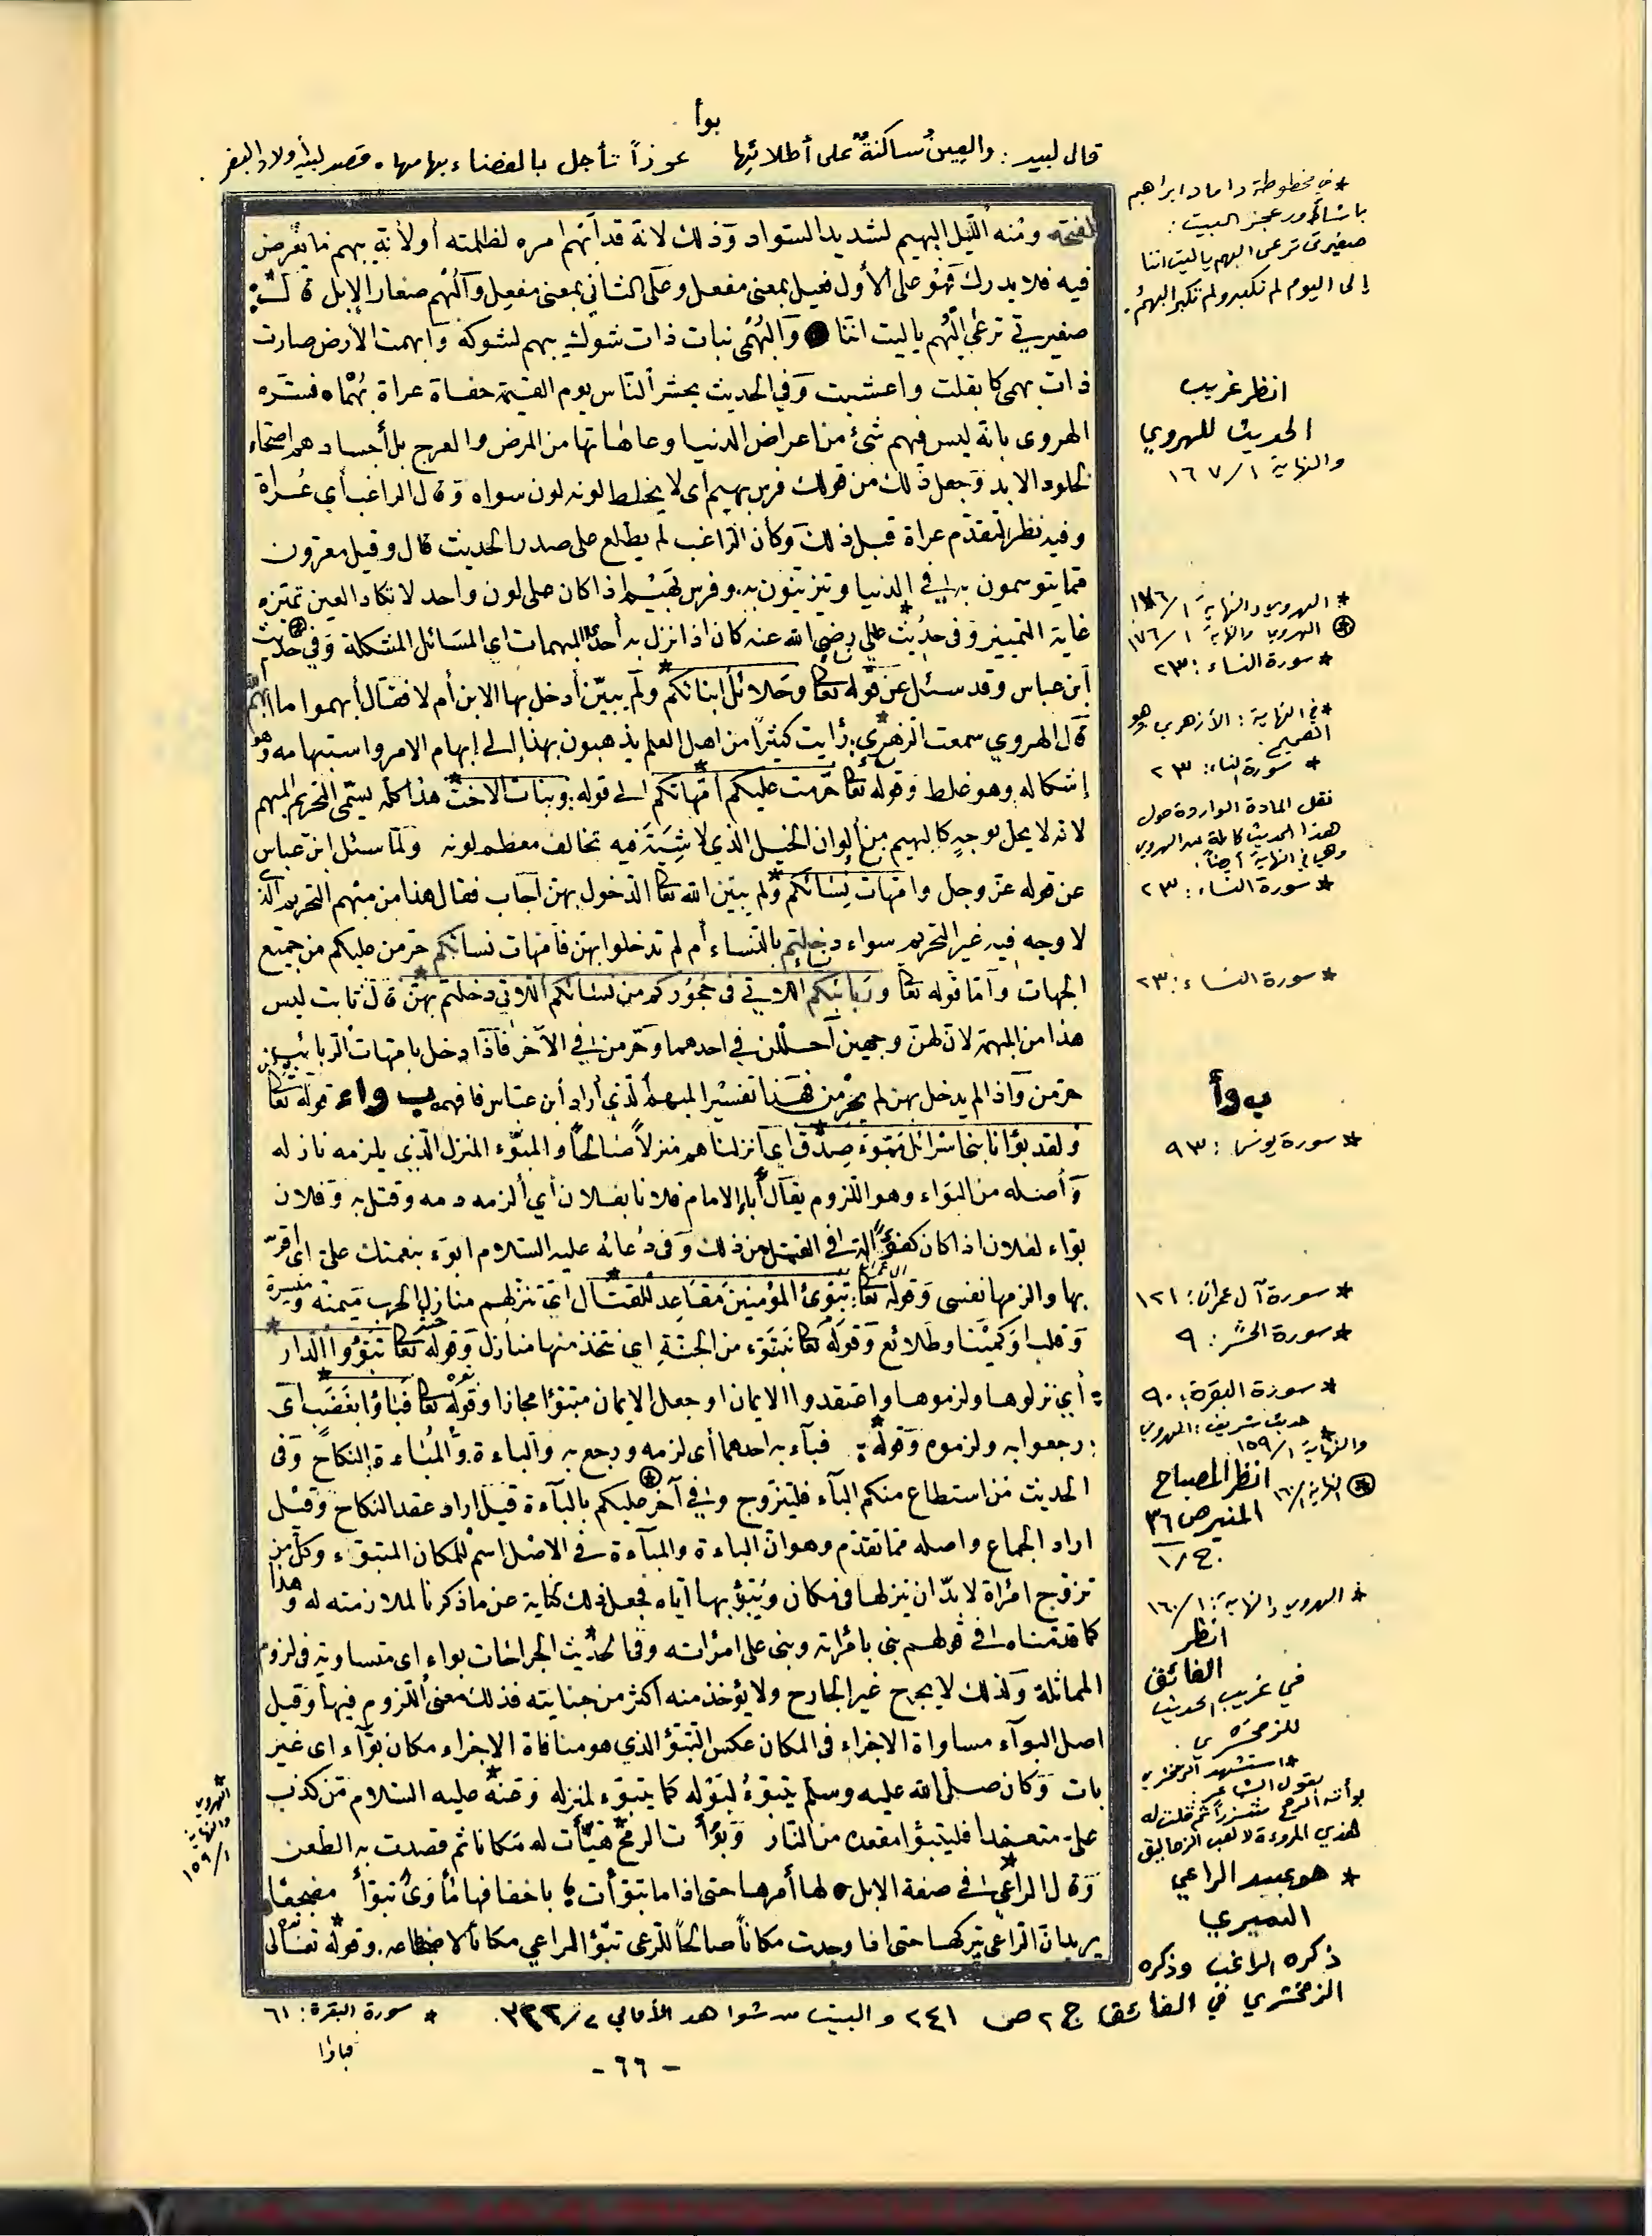 بوأ
قال لبيد : والعِينُ ساكنةٌ على أطلائِها عوذاً تأجل بالفضاء بهامها . قصد لبيد أولاد البقر .
ومنه الليل البهيم لشديد السواد وذلك لانه قد أبهم امره لظلمته أو لأنه يبهم ما يعرض
فيه فلا يدرك فهو على الأول فعيل بمعنى مفعل وعلى الثاني بمعنى مفعل والبهم صغار الإبل قال
صغيرين نرعى البهم يا ليت اننا والبهمى نبات ذات شوك يبهم لشوكه وأبهمت الأرض صارت
ذات بهمى كأبقلت واعشبت وفي الحديث يحشر الناس يوم القيمة حفاة عراة بهما فسره
الهروي بانه ليس فيهم شئ من اعراض الدنيا وعاهاتها من المرض والعرج بل أجسادهم اصحاء
لخلود الابد وجعل ذلك من قولك فرس بهيم اى لا يخلط لونه لون سواه وقال الراغب أي عراة
وفيه نظر لتقدم عراة قبل ذلك وكأن الراغب لم يطلع على صدر الحديث قال وقيل معرون
مما يتوسمون به في الدنيا ويتزينون به وفرس بهيم اذا كان على لون واحد لا تكاد العين تميزه
غاية التمييز وفى حديث على رضى الله عنه كان اذا نزل به أحدى المبهمات اي المسائل المشكلة وفي حديث
ابن عباس وقد سئل عن قوله تعالى وحلائل ابنائكم ولم يبين أدخل بها الابن أم لا فقال أبهموا ما ابهم الله
قال الهروي سمعت الزهري : رايت كثيراً من اهل العلم يذهبون بهذا إلى إبهام الامر واستبهامه وهو
إشكاله وهو غلط وقوله تعالى حرمت عليكم امهاتكم الى قوله : وبنات الاخت هذا كله يسمى التحريم المبهم
لانه لا يحل بوجه كالبهيم من ألوان الخيل الذي لا شية فيه تخالف معظم لونه ولما سئل ابن عباس
عن قوله عز وجل وامهات نسائكم ولم يبين الله تعالى الدخول بهن اجاب فقال هذا من مبهم التحريم الذي
لا وجه فيه غير التحريم سواء دخلتم بالنساء أم لم تدخلوا بهن فامهات نسائكم حرمن عليكم من جميع
الجهات وأما قوله تعالى وربائبكم اللاتي في حجوركم من نسائكم اللاتي دخلتم بهن قال ثابت ليس
هذا من المبهمة لان لهن وجهين أحللن في احدهما وحرمن في الآخر فاذا دخل بامهات الربائب
حرمن واذا لم يدخل بهن لم يحرمن فهذا تفسير المبهم الذي أراد أبن عباس فافهمه ب و ا ء قوله تعالى
ولقد بوأنا بنى اسرائيل مبوء صدق اي أنزلناهم منزلاً صالحاً والمبوء المنزل الذي يلزمه نازله
وأصله من البواء وهو اللزوم يقال أباء الامام فلانا بفلان أي ألزمه دمه وقتل به وفلان
بواء لفلان اذا كان كفؤاً له في القتل من ذلك وفى دعائه عليه السلام ابوء بنعمتك على اي اقر
بها والزمها نفسى وقوله تعالى : تبوئ المؤمنين مقاعد للقتال اي تنزلهم منازل الحرب ميمنة وميسرة
وقلبا وكمينا وطلائع وقوله تعالى نتبوء من الجنة اي نتخذ منها منازل وقوله تعالى تبوؤا الدار
أي نزلوها ولزموها واعتقدوا الايمان او جعل الايمان متبوئا مجازا وقوله تعالى فباؤا بغضب اى
رجعوا به ولزموه وقوله : فباء به احدهما أى لزمه ورجع به والباءة والمباءة النكاح وفى
الحديث من استطاع منكم الباء فليتزوج وفي آخر عليكم بالباءة قيل اراد عقد النكاح وقيل
اراد الجماع واصله مما تقدم وهو ان الباءة والمباءة في الاصل اسم للمكان المتبوء وكل من
تزوج امرأة لا بد ان ينزلها في مكان ويتبؤ بها اياه فجعل ذلك كناية عن ما ذكرنا لملازمته له وهذا
كما قدمناه في قولهم بنى بامرأته وبنى على امرأته وفى الحديث الجراحات بواء اى متساوية في لزوم
المماثلة ولذلك لا يجرح غير الجارح ولا يؤخذ منه اكثر من جنايته فذلك معنى اللزوم فيها وقيل
اصل البوآء مساواة الاجزاء في المكان عكس التبوّ الذي هو منافاة الاجزاء مكان بوآء اى غير
بات وكان صلى الله عليه وسلم يتبوّء لبوله كما يتبوّء لمنزله وعنه عليه السلام من كذب
على متعمدا فليتبوأ مقعده من النار وبوّأت الرمح هيّأت له مكانا ثم قصدت به الطعن
وقال الراعي في صفة الابل لها أمرها حتى اذا ما تبوّأت باخفافها مأوى تبوّأ مضجعا
يريد ان الراعي يتركها حتى اذا وجدت مكاناً صالحاً للرعى تبوّأ الراعي مكاناً لاضطجاعه وقوله تعالى
* في مخطوطة داماد ابراهيم
باشا أورد عجز البيت :
صغيرين نرعى البهم يا ليت اننا
إلى اليوم لم نكبر ولم تكبر البهمُ .
انظر غريب
الحديث للهروي
والنهاية ١/١٦٧
* الهروي والنهاية ١/١٧٦
* الهروي والنهاية ١/١٧٦
* سورة النساء : ٢٣
* في النهاية : الأزهري وهو
الصحيح
* سورة النساء : ٢٣
نقل المادة الواردة حول
هذا الحديث كاملة عن الهروي
وهي في النهاية أيضاً .
* سورة النساء : ٢٣
* سورة النساء : ٢٣
ب وأ
* سورة يونس : ٩٣
* سورة آل عمران : ١٢١
* سورة الحشر : ٩
* سورة البقرة : ٩٠
* حديث شريف : الهروي
والنهاية ١/١٥٩
* النهاية ١/١٦٠
انظر المصباح
المنير ص ٣٦
ج/١
* الهروي والنهاية : ١/١٦٠
انظر
الفائق
في غريب الحديث
للزمخشري .
* استشهد الزمخشري
بقول الشاعر
بوأته الرمح شزراً ثم قلت له
هذي المروءة لا لعب الزحاليق
* هو عبيد الراعي
النميري
ذكره الراغب وذكره
الزمخشري في الفائق ج ٢ ص ٢٤١ والبيت من شواهد الأمالي
* الهروي
والنهاية
١/١٥٩
* سورة البقرة : ٦١
فباؤا
- ٦٦ -